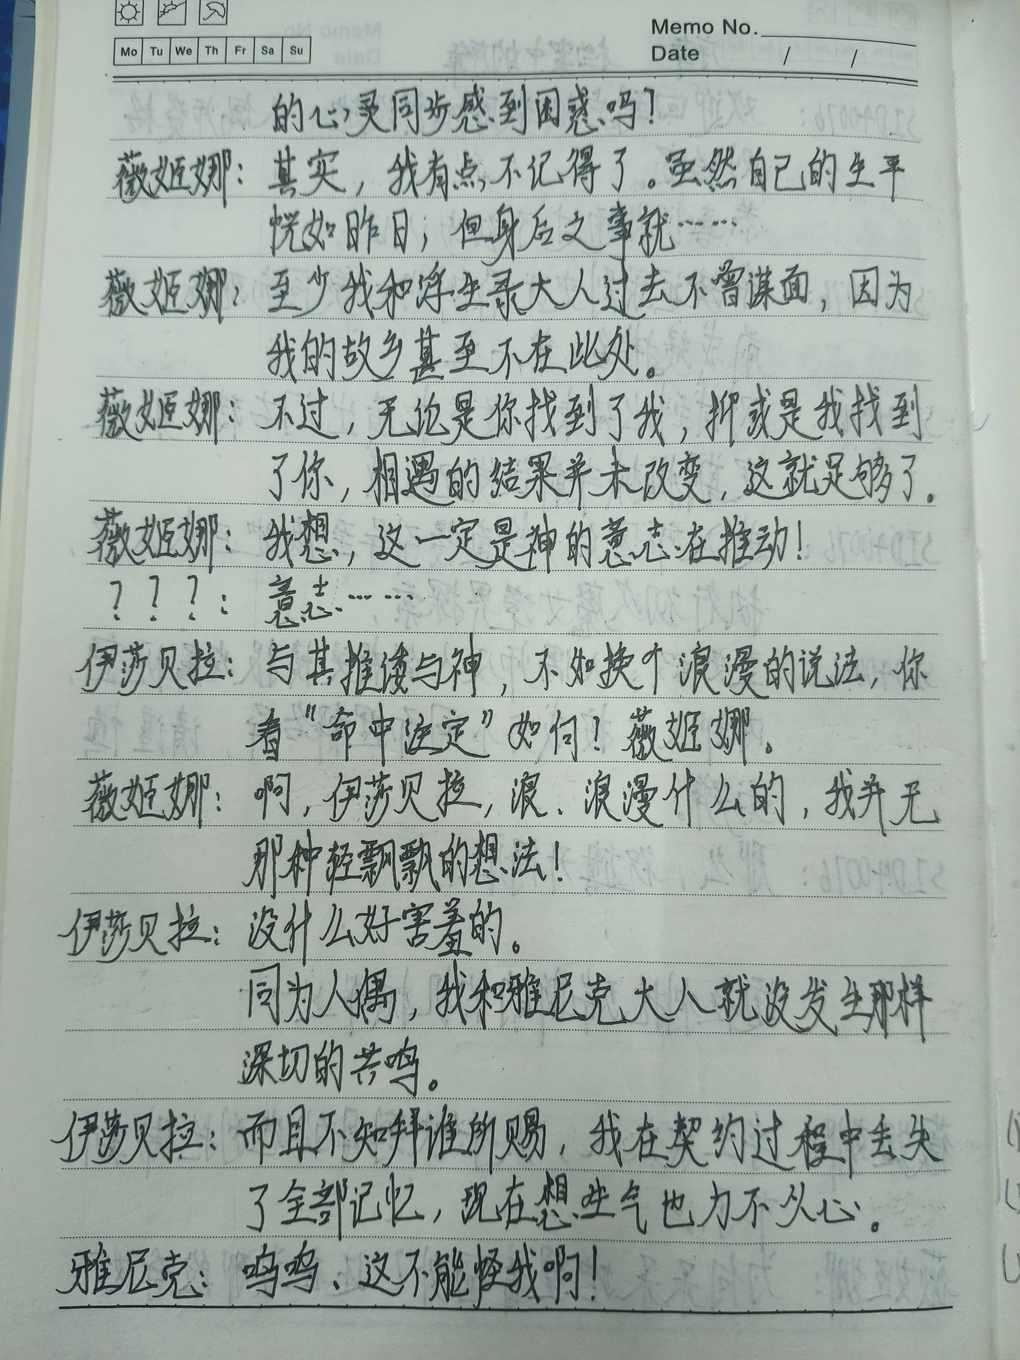 Mo Tu We Th Fr Sa Su
Memo No.
Date / /
的心灵同步感到困惑吗?
薇姬娜: 其实，我有点不记得了。虽然自己的生平
恍如昨日，但身后之事就……
薇姬娜: 至少我和浮生录大人过去不曾谋面，因为
我的故乡甚至不在此处。
薇姬娜: 不过，无论是你找到了我，抑或是我找到
了你，相遇的结果并未改变，这就足够了。
薇姬娜: 我想，这一定是神的意志在推动!
? ? ? : 意志……
伊莎贝拉: 与其推诿与神，不如换个浪漫的说法，你
看“命中注定”如何? 薇姬娜。
薇姬娜: 啊，伊莎贝拉，浪、浪漫什么的，我并无
那种轻飘飘的想法!
伊莎贝拉: 没什么好害羞的。
同为人偶，我和雅尼克大人就没发生那样
深切的共鸣。
伊莎贝拉: 而且不知拜谁所赐，我在契约过程中丢失
了全部记忆，现在想生气也力不从心。
雅尼克: 呜呜、这不能怪我啊!